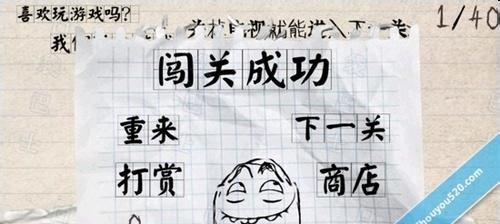 喜欢玩游戏吗? 1/40
我 就能进入下一关
闯关成功
重来 下一关
打赏 商店
houyou520.com